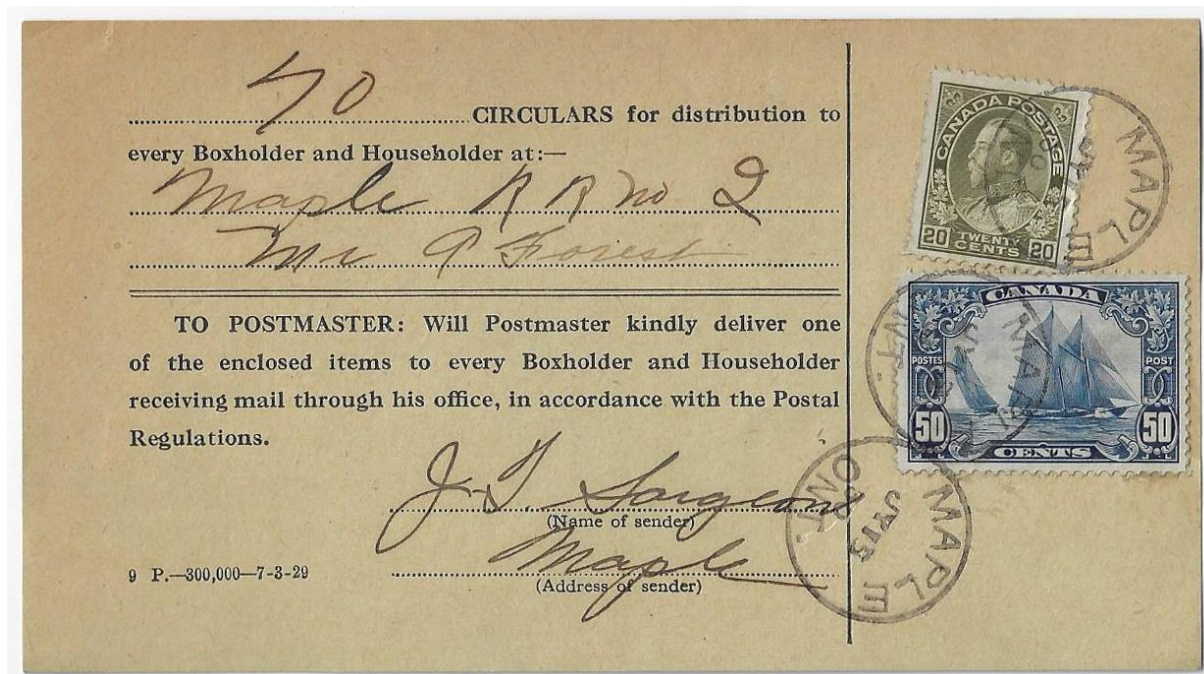 70 CIRCULARS for distribution to
every Boxholder and Householder at:—
Maple R R no 2
Mr P Forest
TO POSTMASTER: Will Postmaster kindly deliver one
of the enclosed items to every Boxholder and Householder
receiving mail through his office, in accordance with the Postal
Regulations.
J. T. Sargeon
(Name of sender)
Maple
(Address of sender)
9 P.—300,000—7-3-29
CANADA POSTAGE
20 TWENTY CENTS 20
MAPLE
CANADA
POSTES POST
50 CENTS 50
MAPLE
ONT.
JY 15